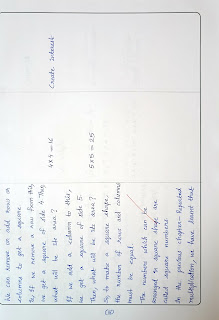 We can remove or add rows or
columns to get a square.
Ex: If we remove a row from this,
we get a square of side 4. Then,
what will be its area?
4 x 4 = 16
If we add a column to this,
we get a square of side 5.
Then, what will be its area?
5 x 5 = 25
So, to make a square shape,
the number of rows and columns
must be equal.
The numbers which can be
arranged in square shape are
called square numbers.
In the previous chapter - Repeated
multiplication, we have learnt that
Create Interest